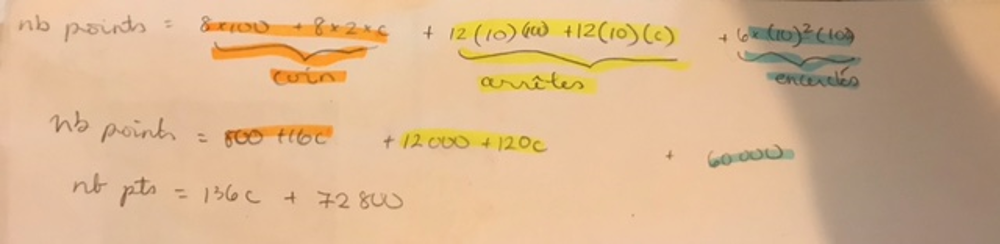 nb points = 8×100 + 8×2×c + 12(10)(100) + 12(10)(c) + 6×(10)²(100)
coin arrêtes encerclés
nb points = 800 + 16c + 12000 + 120c + 60000
nb pts = 136c + 72800